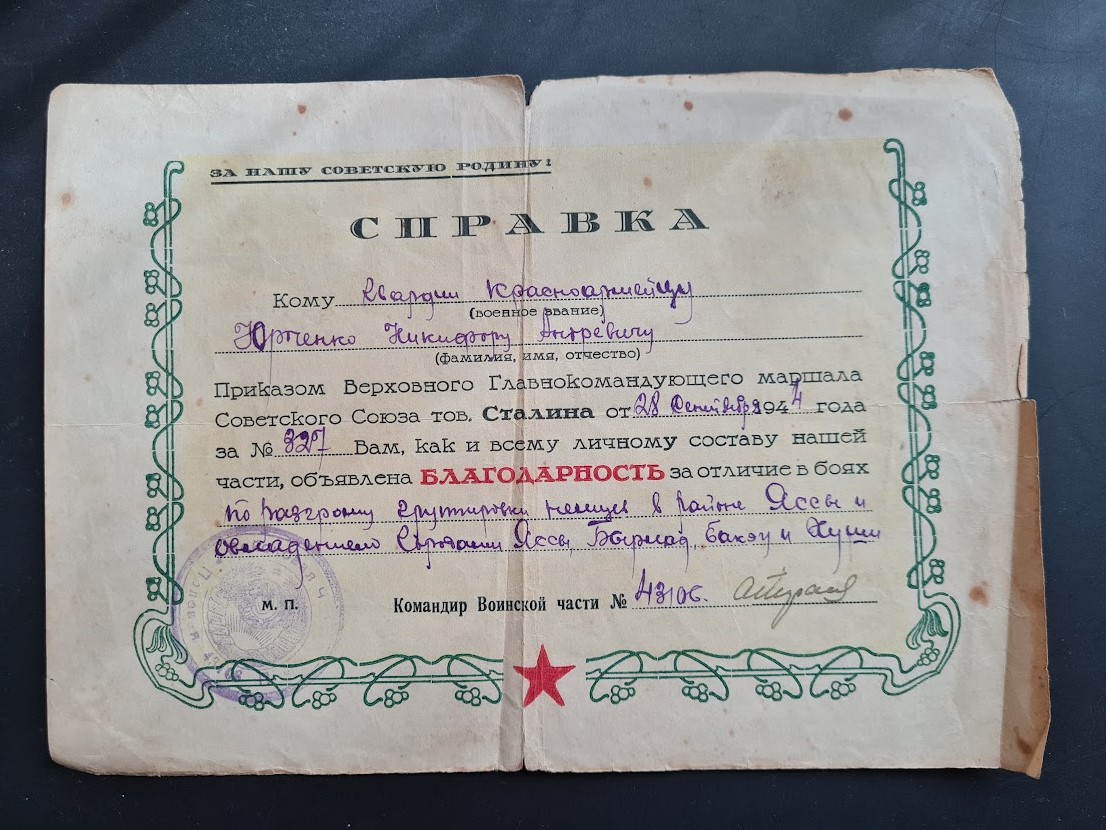 ЗА НАШУ СОВЕТСКУЮ РОДИНУ!
СПРАВКА
Кому гвардии Красноармейцу
(военное звание)
Юрченко Никифору Андревичу
(фамилия, имя, отчество)
Приказом Верховного Главнокомандующего маршала
Советского Союза тов. Сталина от 28 Сентября 1944 года
за № 327 Вам, как и всему личному составу нашей
части, объявлена БЛАГОДАРНОСТЬ за отличие в боях
по разгрому групировки немцев в районе Яссы и
овладением городами Яссы, Бырлад, Бакэу и Хуши
М. П. Командир Воинской части № 43106.